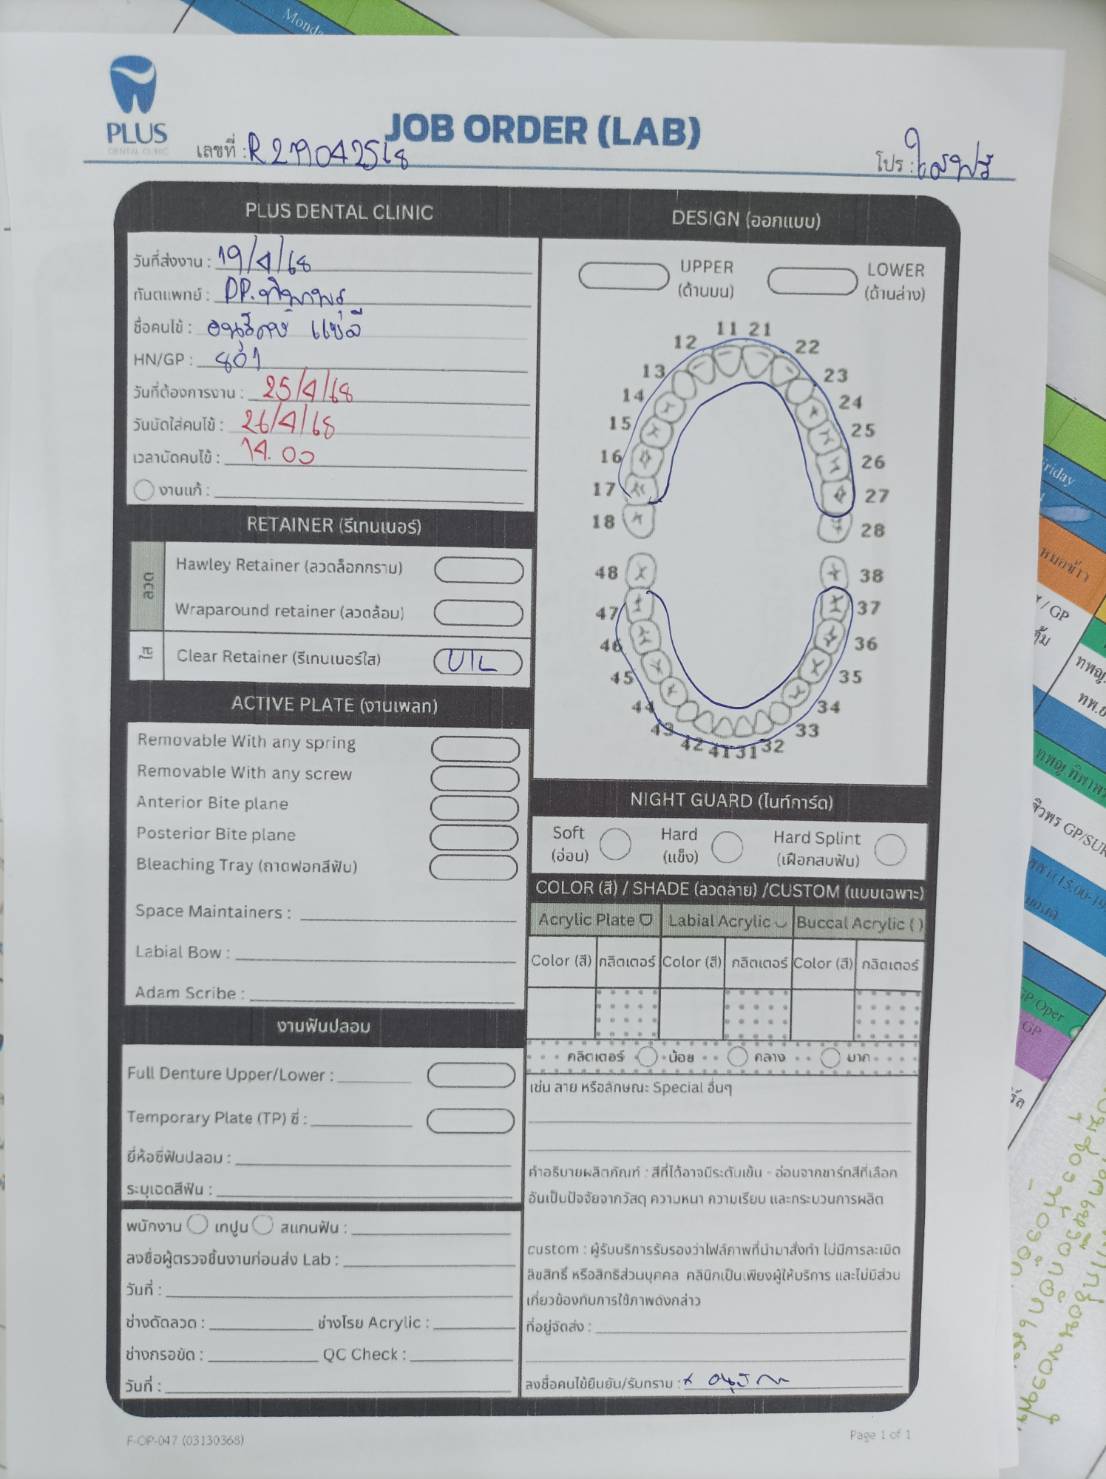 PLUS
DENTAL CLINIC
JOB ORDER (LAB)
เลขที่ :
โปร : ใสฟรี
PLUS DENTAL CLINIC
วันที่ส่งงาน : 19/4/68
ทันตแพทย์ :
ชื่อคนไข้ :
HN/GP : 801
วันที่ต้องการงาน : 25/4/68
วันนัดใส่คนไข้ : 26/4/68
เวลานัดคนไข้ : 14.00
งานแก้ :
RETAINER (รีเทนเนอร์)
ลวด
Hawley Retainer (ลวดล็อกกราม)
Wraparound retainer (ลวดล้อม)
ใส
Clear Retainer (รีเทนเนอร์ใส) U/L
ACTIVE PLATE (งานเพลท)
Removable With any spring
Removable With any screw
Anterior Bite plane
Posterior Bite plane
Bleaching Tray (ถาดฟอกสีฟัน)
Space Maintainers :
Labial Bow :
Adam Scribe :
งานฟันปลอม
Full Denture Upper/Lower :
Temporary Plate (TP) ซี่ :
ยี่ห้อซี่ฟันปลอม :
ระบุเฉดสีฟัน :
พนักงาน เทปูน สแกนฟัน :
ลงชื่อผู้ตรวจชิ้นงานก่อนส่ง Lab :
วันที่ :
ช่างดัดลวด : ช่างโรย Acrylic :
ช่างกรอขัด : QC Check :
วันที่ :
DESIGN (ออกแบบ)
UPPER
(ด้านบน)
LOWER
(ด้านล่าง)
11 21
12 22
13 23
14 24
15 25
16 26
17 27
18 28
48 38
47 37
46 36
45 35
44 34
43 33
42 41 31 32
NIGHT GUARD (ไนท์การ์ด)
Soft
(อ่อน)
Hard
(แข็ง)
Hard Splint
(เฝือกสบฟัน)
COLOR (สี) / SHADE (ลวดลาย) /CUSTOM (แบบเฉพาะ)
Acrylic Plate Labial Acrylic Buccal Acrylic ( )
Color (สี) กลิตเตอร์ Color (สี) กลิตเตอร์ Color (สี) กลิตเตอร์
กลิตเตอร์ น้อย กลาง มาก
เช่น ลาย หรือลักษณะ Special อื่นๆ
คำอธิบายผลิตภัณฑ์ : สีที่ได้อาจมีระดับเข้ม - อ่อนจากชาร์ทสีที่เลือก
อันเป็นปัจจัยจากวัสดุ ความหนา ความเรียบ และกระบวนการผลิต
custom : ผู้รับบริการรับรองว่าไฟล์ภาพที่นำมาสั่งทำ ไม่มีการละเมิด
ลิขสิทธิ์ หรือสิทธิส่วนบุคคล คลินิกเป็นเพียงผู้ให้บริการ และไม่มีส่วน
เกี่ยวข้องกับการใช้ภาพดังกล่าว
ที่อยู่จัดส่ง :
ลงชื่อคนไข้ยืนยัน/รับทราบ : x
F-OP-047 (03130368)
Page 1 of 1